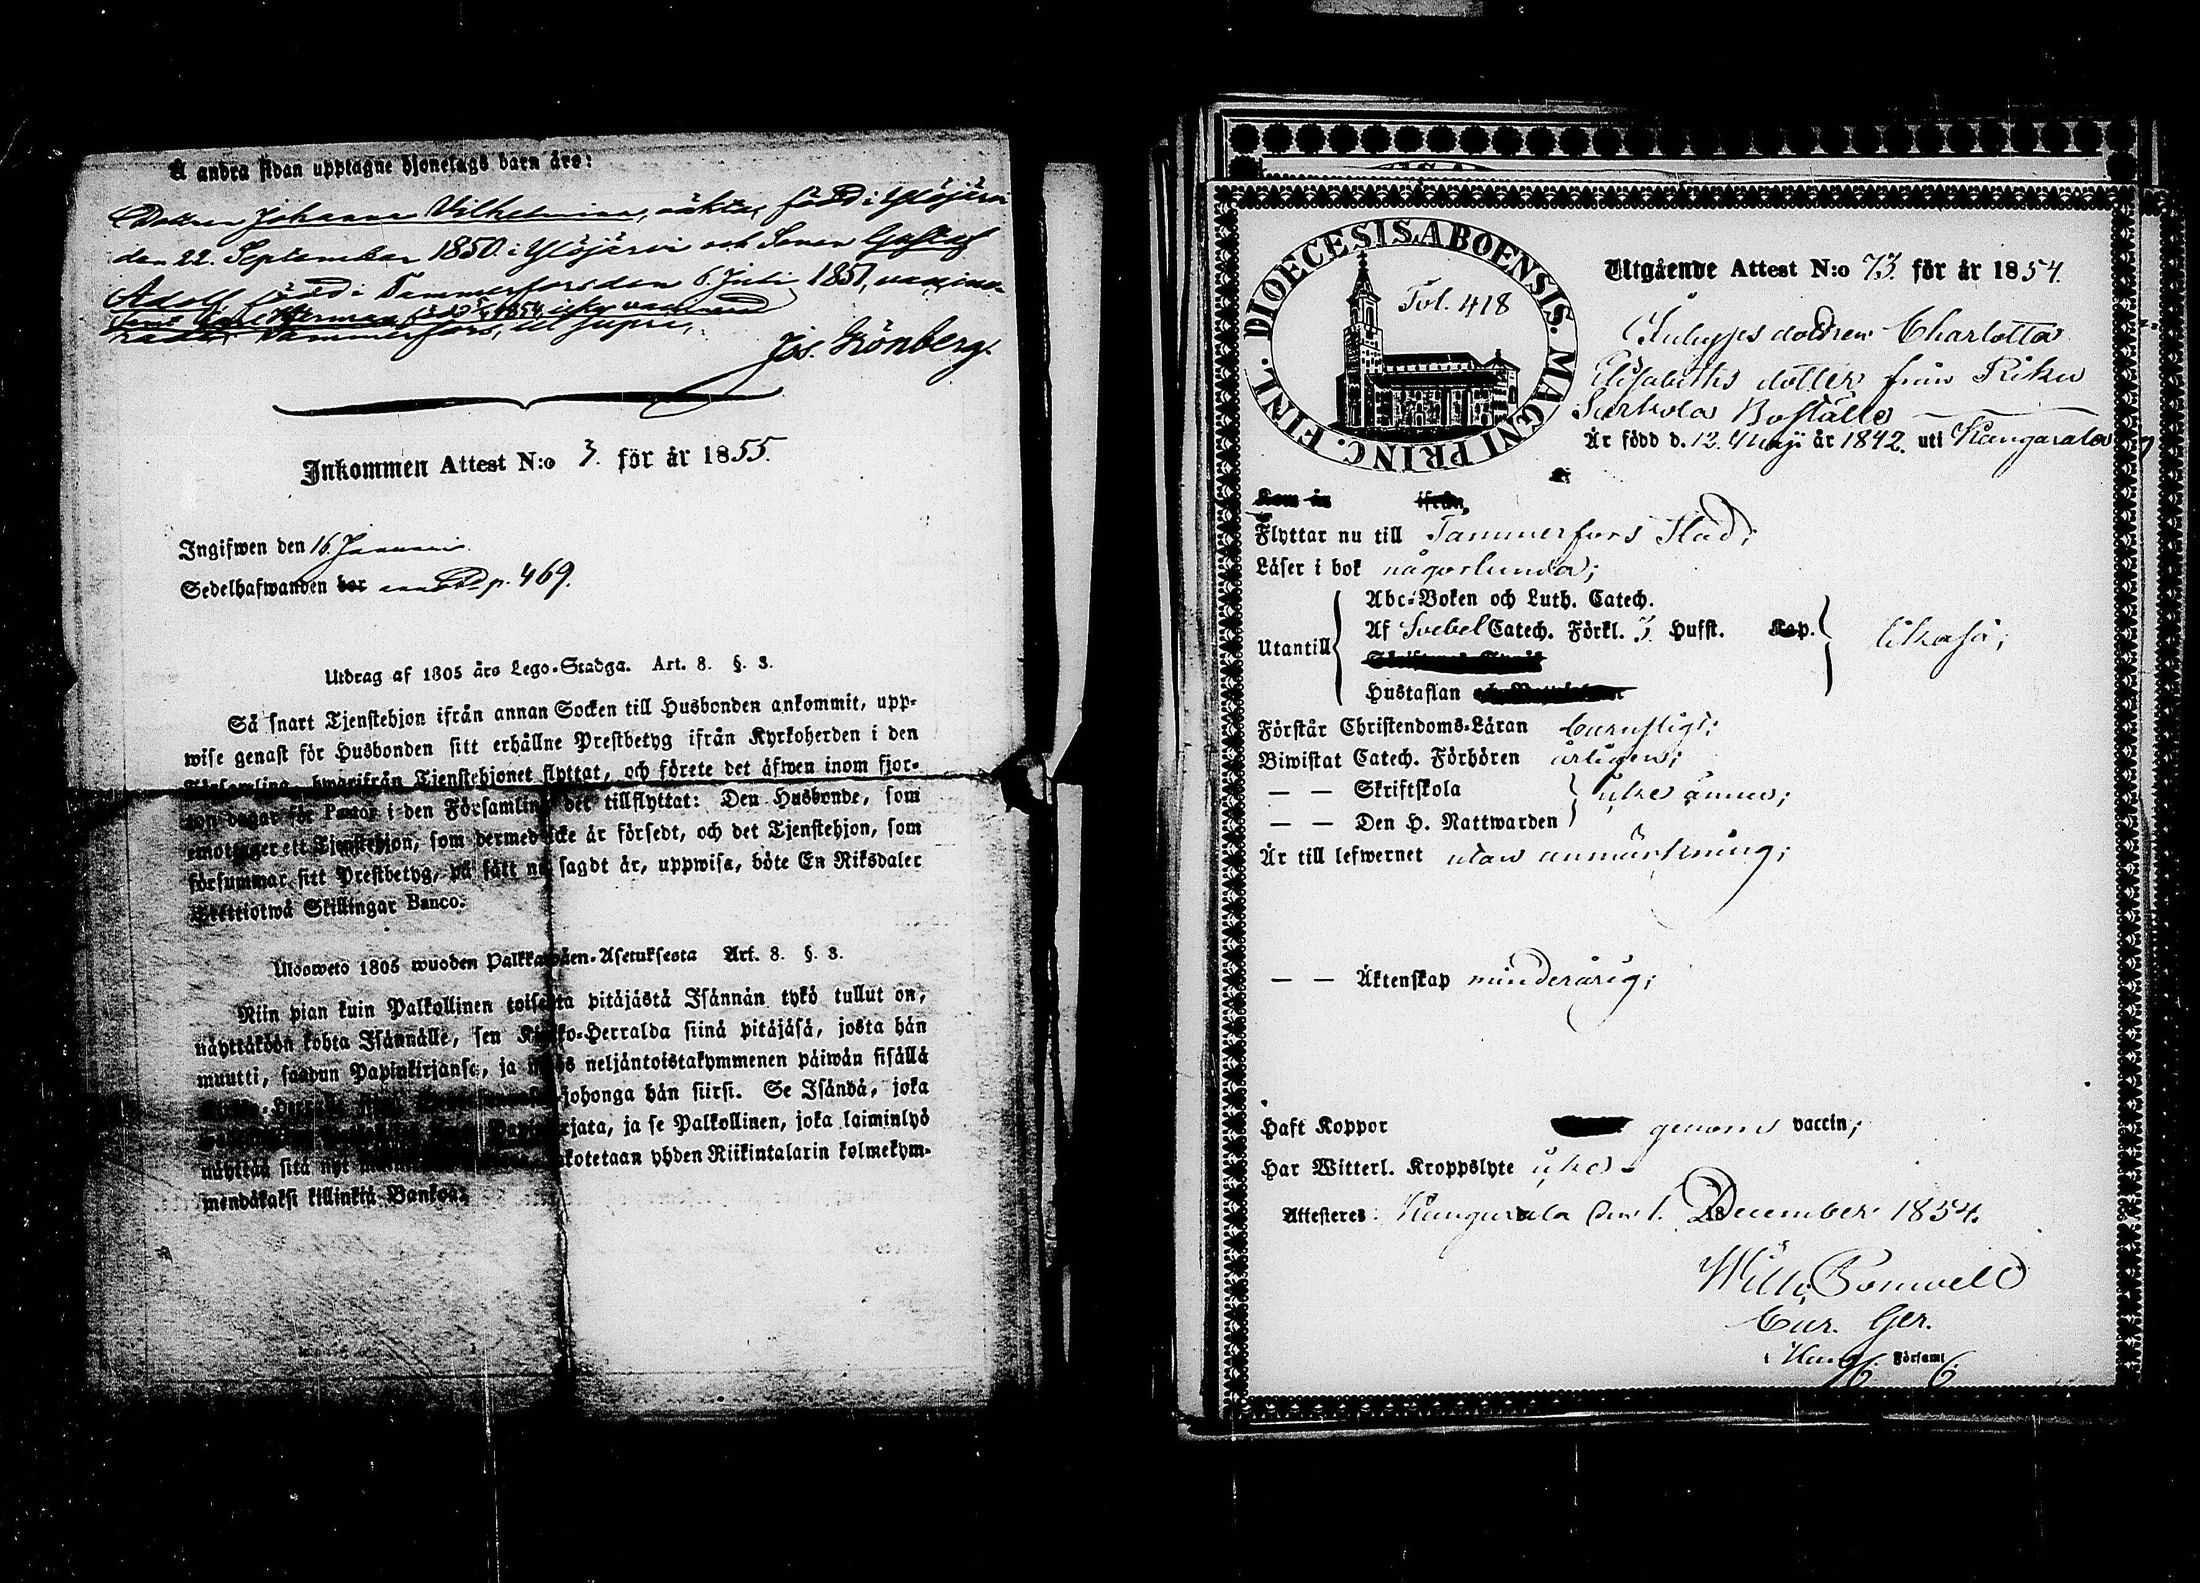 Å andra sidan upptagne hjonelags barn äro:
Dottren Johanna Vilhelmina, äkta, född i Ylöjärvi
den 22. September 1850. i Ylöjärvi och Sonen Gustaf
Adolf född i Tammerfors den 6. Juli 1851, vaccine-
samt Carl Herman född 1854 icke vaccinerad
rade, Tammerfors, ut supra,
Jos. Grönberg.
Inkommen Attest N:o 3. för år 1855.
Ingifwen den 16 Januarii
Sedelhafwanden bor p. 469.
Utdrag af 1805 års Lego-Stadga. Art. 8. §. 3.
Så snart Tjenstehjon ifrån annan Socken till Husbonden ankommit, upp-
wise genast för Husbonden sitt erhållne Prestbetyg ifrån Kyrkoherden i den
Församling, hwarifrån Tjenstehjonet flyttat, och förete det äfwen inom fjor-
ton dagar för Pastor i den Församling det tillflyttat: Den Husbonde, som
emottager ett Tjenstehjon, som dermed icke är försedt, och det Tjenstehjon, som
försummar sitt Prestbetyg, på sätt nu sagdt är, uppwisa, böte En Riksdaler
Trettiotwå Skillingar Banco.
Uloswetö 1805 wuoden Palkkawäen-Asetuksesta Art. 8. §. 3.
Niin pian kuin Palkollinen toisesta pitäjästä Isännän tykö tullut on,
näyttäköön kohta Isännälle, sen Kirkko-Herralda siinä pitäjäsä, josta hän
muutti, saadun Papinkirjansa, ja myös neljäntoistakymmenen päiwän sisällä
johonga hän siirsi. Se Isändä, joka
ja se Palkollinen, joka laiminlyö
näyttää sitä nyt sakotetaan yhden Riikintalarin kolmekym-
mendäkaksi killinkiä Bankoa.
DIOECESIS ABOENSIS. MAGNI PRINC. FINL.
Fol. 418
Utgående Attest N:o 73. för år 1854.
Inhyses dottren Charlotta
Elisabeths dotter från Riku
Sarkola Boställe
Är född d. 12. Maji år 1842. uti Kangasala
Kom in ifrån
Flyttar nu till Tammerfors Stad;
Läser i bok någorlunda;
Abc-Boken och Luth. Catech.
Utantill Af Svebel Catech. Förkl. 3. Hufst. Kap. likaså;
Hustaflan
Förstår Christendoms-Läran barnsligt;
Biwistat Catech. Förhören årligen;
— — Skriftskola icke ännu;
— — Den H. Nattwarden
Är till lefwernet utan anmärkning;
— — Äktenskap minderårig;
Haft Koppor genom vaccin;
Har Witterl. Kroppslyte icke.
Attesteres: Kangasala den 1. December 1854.
Cur. Ger.
Församl.